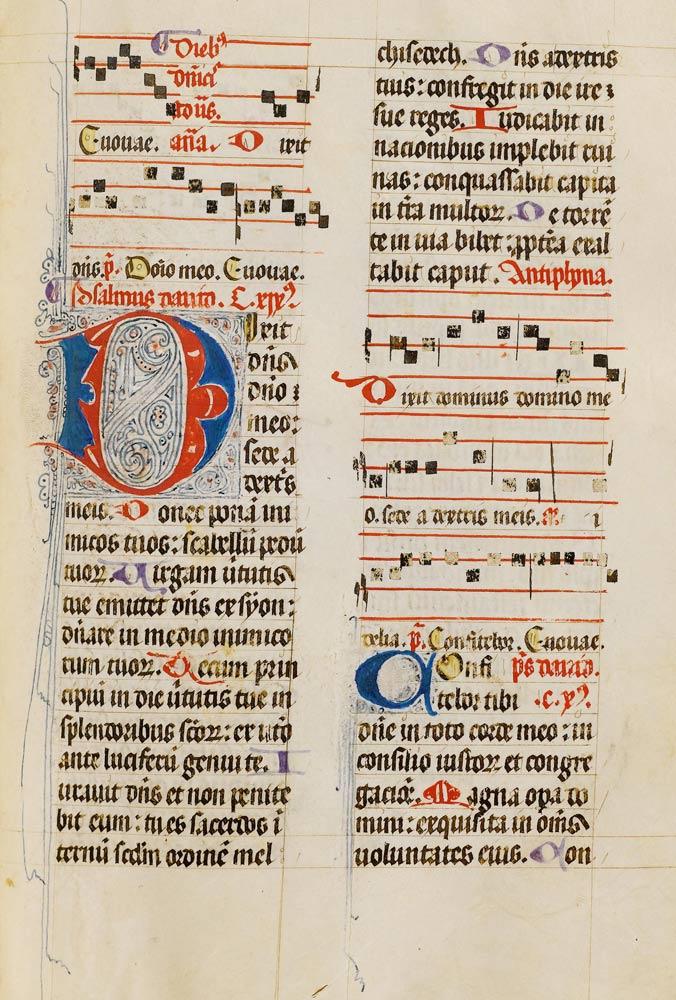 Dieb⁹
dn̄ic̄
Euouae. an̄a. D ixit
dn̄s. p̄. Dōio meo. Euouae.
Psalmus dauid. C. xix⁹.
Dixit
dn̄s
dn̄o
meo:
sede a
dext̄s
meis. D onec ponā ini
micos tuos: scabellū pedū
tuoꝝ. V irgam v̄tutis
tue emittet dn̄s ex syon:
dn̄are in medio inimico
rum tuoꝝ. T ecum prin
cipiū in die v̄tutis tue in
splendoribus sc̄oꝝ: ex vt̄o
ante luciferū genui te. I
urauit dn̄s et non penite
bit eum: tu es sacerdos ī
ternū sedm̄ ordinē mel
chisedech. D n̄s a dextris
tuis: confregit in die ire
sue reges. I udicabit in
nacionibus implebit rui
nas: conquassabit capita
in t̄ra multoꝝ. D e torrē
te in uia bibet: ꝓpt̄ea exal
tabit caput. Antiphona.
D ixit dominus domino me
o. sede a dextris meis.
delia. p̄. Confitebor. Euouae.
Confi ps̄ dauid.
tebor tibi .c.x⁹.
dn̄e in toto corde meo: in
consilio iustoꝝ et congre
gacōe. M agna oꝑa do
mini: exquisita in om̄s
voluntates eius. Con